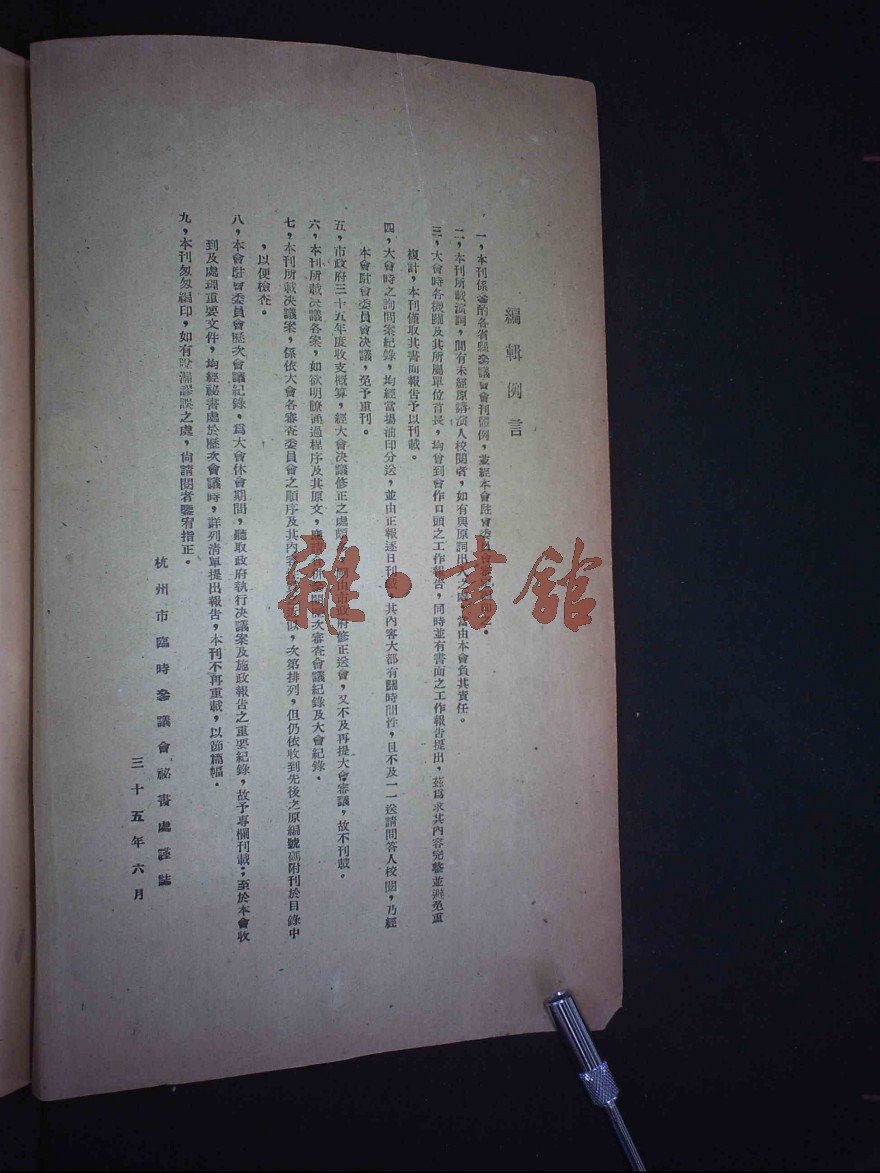 編輯例言
一，本刊係參酌各省縣參議會會刊體例，並經本會駐會委員會
二，本刊所載演詞，間有未經原講演人校閱者，如有與原詞出入之處，當由本會負其責任。
三，大會時各機關及其所屬單位首長，均曾到會作口頭之工作報告，同時並有書面之工作報告提出，茲爲求其內容完整並避免重
複計，本刊僅取其書面報告予以刊載。
四，大會時之詢問案紀錄，均經當場油印分送，並由正報逐日刊載，其內容大都有關時間性，且不及一一送請問答人校閱，乃經
本會駐會委員會決議，免予重刊。
五，市政府三十五年度收支概算，經大會決議修正之處頗 由市政府修正送會，又不及再提大會審議，故不刊載。
六，本刊所載決議各案，如欲明瞭通過程序及其原文， 參閱 次審查會議紀錄及大會紀錄。
七，本刊所載決議案，係依大會各審查委員會之順序及其內容性質之近似，次第排列，但仍依收到先後之原編號碼附刊於目錄中
，以便檢查。
八，本會駐會委員會歷次會議紀錄，爲大會休會期間，聽取政府執行決議案及施政報告之重要紀錄，故予專欄刊載；至於本會收
到及處理重要文件，均經祕書處於歷次會議時，詳列清單提出報告，本刊不再重載，以節篇幅。
九，本刊匆匆編印，如有脫漏謬誤之處，尚請閱者鑒宥指正。
杭州市臨時參議會祕書處謹誌
三十五年六月
雜·書館